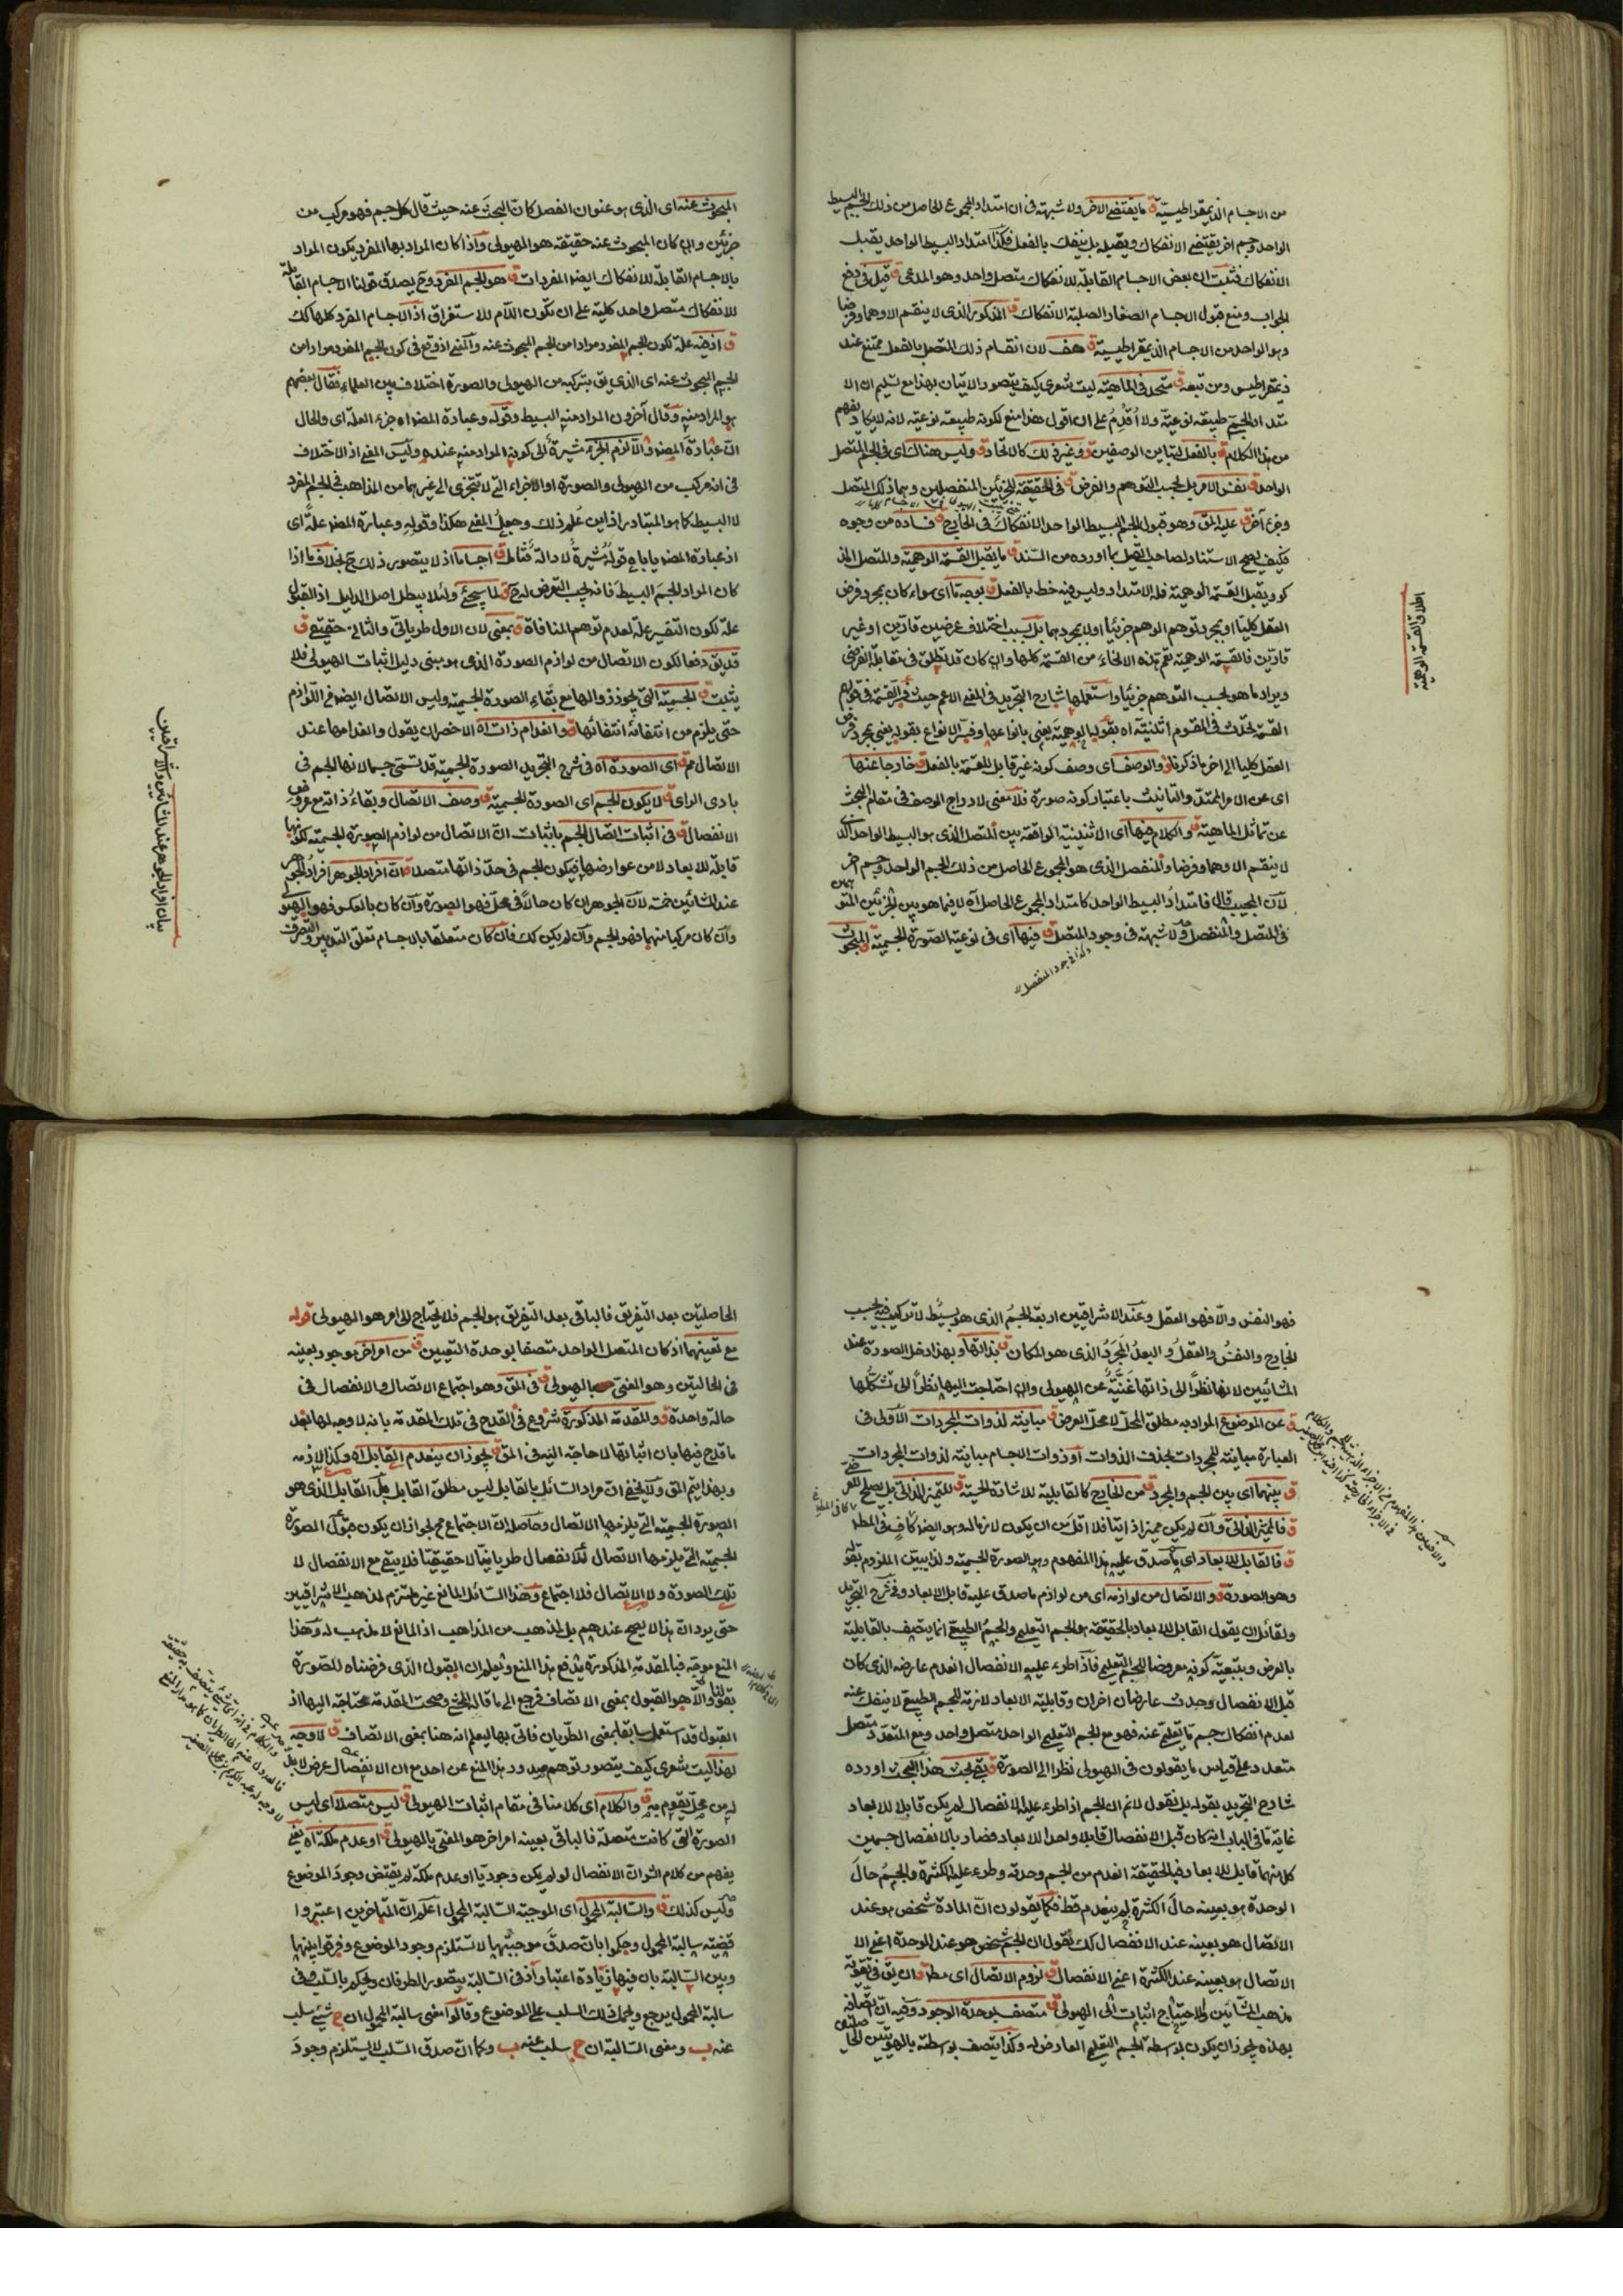 من الاجسام الذيمقراطيسية ق ما يقتضي الاخر ولا شبهة في ان امتداد المجموع الحاصل من ذلك الجسم البسيط
الواحد وجسم اخر يقتضي الانفكاك ويقبله بل ينفك بالفعل فكذا امتداد البسيط الواحد يقبل
الانفكاك فثبت ان بعض الاجسام القابلة للانفكاك متصل واحد وهو المدعى ق قيل في دفع
الجواب ومنع قبول الاجسام الصغار الصلبة الانفكاك ق المذكور الذي لا ينقسم الا وهما وفرضا
وهو الواحد من الاجسام الذيمقراطيسية ق هف لان انقسام ذلك المتصل بالفعل ممتنع عند
ذيمقراطيس ومن تبعه ق متحد في الماهية ليت شعري كيف يتصور الاتيان بهذا مع تسليم ان الا
متداد الجسمي طبيعة نوعية ولا اُقدِمُ على ان اقول هذا منع لكونه طبيعة نوعية لانه لا يكاد يفهم
من هذا الكلام ق بالفعل لتباين الوصفين ق وغير ذلك كالاتحاد ق وليس هناك اى في الجسم المتصل
الواحد ق نفس الامر بل بحسب التوهم والفرض ق في الحقيقة للجزئين المنفصلين وبما ذلك المتصل
وجزء آخر ق عليه المق وهو قبول الجسم البسيط الواحد الانفكاك في الخارج ق فساده من وجوه
فكيف يصح الاستناد لصاحب القيل بما اورده من السند ق ما يقبل القسمة الوهمية والمتصل المذ
كور يقبل القسمة الوهمية فله الامتداد وليس فيه خط بالفعل ق بوجه ما اى سواء كان بمجرد فرض
العقل كليا او بمجرد توهم الوهم جزئيا او لا بمجردهما بل بسبب اختلاف عرضين قارين او غير
قارين فالقسمة الوهمية تعم هذه الانحاء من القسمة كلها وان كان قد يطلق في مقابلة الفرضي
ويراد ما هو بحسب التوهم جزئيا واستعملها شارح التجريد في المعنى الاعم حيث فسر القسمة في قولهم
القسمة تحدث في المقسوم اثنينية اه بقوله الوهمية يعني بانواعها وفسر الانواع بقوله يعني بمجرد فرض
العقل كليا الى اخر ما ذكرناه ق والوصف اى وصف كونه غير قابل للقسمة بالفعل ق خارجا عنها
اى عن الامر الممتد والتانيث باعتبار كونه صورة فلا معنى لادراج الوصف في مقام البحث
عن تماثل الماهية ق والكلام فيها اى الاثنينية الواقعة بين المتصل الذي هو البسيط الواحد الذى
لا ينقسم الا وهما وفرضا والمنفصل الذي هو المجموع الحاصل من ذلك الجسم الواحد وجسم اخر
لان المجيب قال فامتداد البسيط الواحد كامتداد المجموع الحاصل اه لا فيما هو بين الجزئين المتو
في المتصل والمنفصل ق ولا شبهة في وجود المتصل ق فيها اى في نوعية الصورة الجسمية ق المبحوث
وكذا في وجود المنفصل
اطلاق القسمة الوهمية
المبحوث عنه اى الذي هو عنوان الفصل كان البحث عنه حيث قال كل جسم فهو مركب من
جزئين وان كان المبحوث عنه حقيقة هو الهيولى واذا كان المراد بها المفرد يكون المراد
بالاجسام القابلة للانفكاك ايضا المفردات ق هو الجسم المفرد وح يصدق قولنا الاجسام القابلة
للانفكاك متصل واحد كلية على ان تكون اللام للاستغراق اذ الاجسام المفرد كلها كك
ق اذ فيه علة لكون الجسم المفرد مرادا من الجسم المبحوث عنه واكتفى اذ وقع في كون الجسم المفرد مرادا من
الجسم المبحوث عنه اى الذي يق بتركبه من الهيولى والصورة اختلاف بين العلماء فقال بعضهم
هو المراد منه وقال آخرون المراد منه البسيط وقوله وعبارة المص اه جزء العلة اى والحال
ان عبارة المص والا لزم الجزء مشيرة الى كونه المراد منه عنده وليس المعنى اذ الاختلاف
في انه مركب من الهيولى والصورة او الاجزاء التي لا تتجزى الى غيرهما من المذاهب في الجسم المفرد
لا البسيط كما هو المتبادر اذ اين عُلم ذلك وجعلُ المعنى هكذا وقوله وعبارة المص علةً اى
اذ عبارة المص ياباه قوله مُشيرةٌ لا دالة فتامل ق اجساما اذ لا يتصور ذلك ح بخلاف ما اذا
كان المراد الجسم البسيط فانه يجب التعرض له ح ق لما سيجئ ولئلا يبطل اصل الدليل اذ القبول
علة لكون التفسير علة لعدم توهم المنافاة ق بمعنى لان الاول طرياني والثاني حقيقي ق
قد يق دفعا لكون الاتصال من لوازم الصورة الذي هو مبنى دليل اثبات الهيولى فلا
يثبت ق الجسمية التي يجوز زوالها مع بقاء الصورة الجسمية وليس الاتصال ايضا من اللوازم
حتى يلزم من انتفائه انتفائها ق وانعدام ذات اه الاخصر ان يقول وانعدامها عند
الاتصال مم ق اى الصورة اه في شرح التجريد الصورة الجسمية قد تسمى جسما لانها الجسم في
بادى الراى ق لا يكون الجسم اى الصورة الجسمية ق وصف الاتصال وبقاء ذاته مع عروض
الانفصال ق في اثبات اتصال الجسم باثبات ان الاتصال من لوازم الصورة الجسمية ككونها
قابلة للابعاد لا من عوارضها فيكون الجسم في حد ذاتها متصلا ق ان افراد الجوهر افراد الجوهر
عند المشائين خمسة لان الجوهر ان كان حالاً في محل فهو الصورة وان كان بالعكس فهو الهيولى
وان كان مركبا منهما فهو الجسم وان لم يكن كك فان كان متعلقا بالاجسام تعلق التدبير والتصرف
بيان افراد الجوهر عند المشائين والاشراقيين
فهو النفس والا فهو العقل وعند الاشراقيين اربعة الجسمُ الذي هو بسيط لا تركيب فيه بحسب
الخارج والنفسُ والعقلُ والبعدُ المجردُ الذي هو المكان ق بذاتها وبهذا دخل الصورة عند
المشائيين لانها نظراً الى ذاتها غنيَّة عن الهيولى وان احتاجت اليها نظراً الى تشكلها
ق عن الموضوع المراد به مطلق المحل لا محل العرض ق مباينة لذوات المجردات الاولى في
العبارة مباينة للمجردات بحذف الذوات او ذوات الاجسام مباينة لذوات المجردات
ق بينهما اى بين الجسم والمجرد ق من الخارج كالقابلية للاشارة الحسية ق للتميز الذاتي بل يصلح للعرضي
ق فالمميز الذاتي وان لم يكن مميزا ذاتيا فلا اقل من ان يكون لازما له وهو ايضا كافٍ في المط
ق فالقابل للابعاد اى ما صدق عليه هذا المفهوم وهو الصورة الجسمية ولذا بين الملزوم بقوله
وهو الصورة ق والاتصال من لوازمه اى من لوازم ما صدق عليه قابل الابعاد وفي شرح التجريد
ولقائل ان يقول القابل للابعاد بالحقيقة هو الجسم التعليمي والجسم الطبيعي انما يتصف بالقابلية
بالعرض وبتبعية كونه معروضا للجسم التعليمي فاذا طرء عليه الانفصال انعدم عارضه الذي كان
قبل الانفصال وحدث عارضان اخران وقابلية الابعاد لازمة للجسم الطبيعي لا ينفك عنه
لعدم انفكاك جسم ما تعليمي عنه فهو مع الجسم التعليمي الواحد متصل واحد ومع المتعدد متصل
متعدد على قياس ما يقولون في الهيولى نظرا الى الصورة ق بقي بحث هذا البحث اورده
شارح التجريد بقوله بل نقول لانم ان الجسم اذا طرء عليه الانفصال لم يكن قابلا للابعاد
غاية ما في الباب انه كان قبل الانفصال قابلا واحدا للابعاد فصار بالانفصال جسمين
كل منهما قابل للابعاد فبالحقيقة انعدم من الجسم وحدته وطرء عليه الكثرة والجسمُ حالَ
الوحدة هو بعينه حالَ الكثرة لم ينعدم قط فكما يقولون ان المادة شخص هو عند
الاتصال هو بعينه عند الانفصال كك نقول ان الجسم شخص هو عند الوحدة اعني الا
الاتصال هو بعينه عند الكثرة اعني الانفصال ق لزوم الاتصال اى مط ق ان يق في تقوية
مذهب المشائين ولاحتياج اثبات الى الهيولى ق متصف بوحدة الوجود وفيه ان اتصافه
بهذه يجوز ان يكون بواسطة الجسم التعليمي العارض له وكذا يتصف بواسطة بالهويتين الحا
الحاصلتين بعد التفريق فالباقي بعد التفريق هو الجسم فلا يحتاج الى امر هو الهيولى قوله
مع تعينهما اذ كان المتصل الواحد متصفا بوحدة التعين ق من امر اخر موجود بعينه
في الحالتين وهو المعنى بالهيولى ق في المق وهو اجتماع الاتصال والانفصال في
حالة واحدة ق والمقدمة المذكورة شروع في القدح في تلك المقدمة بانه لا وجه لها بعد
ما قدح فيها بان اثباتها لا حاجة اليه في المق ق يجوز ان ينعدم القابل اه وكذا لازمه
وبهذا يتم المق ولا يخفى ان مراد السائل بالقابل ليس مطلق القابل بل القابل الذي هو
الصورة الجسمية التي يلزمها الاتصال وحاصله ان الاجتماع مم لجواز ان يكون قبول الصورة
الجسمية التي يلزمها الاتصال للانفصال طريانيا لا حقيقيا فلا يبقى مع الانفصال لا
تلك الصورة ولا الاتصال فلا اجتماع وهذا السائل المانع غير ملتزم لمذهب الاشراقيين
حتى يرد ان هذا لا يصح عندهم بل لمذهب من المذاهب اذ المانع لا مذهب له وهذا
المنع موجه فبالمقدمة المذكورة يندفع هذا المنع ويعلم ان القبول الذي فرضناه للصورة
بقولنا والا هو القبول بمعنى الاتصاف فرجع الى ما قاله المحشي وصحت المقدمة محتاجة اليها اذ
القبول قد استعمل سابقا بمعنى الطريان فاتى بها ليعلم انه هنا بمعنى الاتصاف ق لا وجه
لهذا ليت شعري كيف يتصور توهم صدور هذا المنع عن احد مع ان الانفصال عرض لا بد
له من محل يقوم به ق والكلام اى كلامنا في مقام اثبات الهيولى ق ليس متصلا اى ليس
الصورة التي كانت متصلة فالباقي بعينه امر اخر هو المعنى بالهيولى ق او عدم ملكة اه يعني
يفهم من كلام الش ان الانفصال لو لم يكن وجوديا او عدم ملكة لم يقتض وجودَ الموضوع
وليس كذلك ق والسالبة المحمول اى الموجبة السالبة المحمول اعلم ان المتاخرين اعتبروا
قضية سالبة المحمول وحكموا بان صدق موجبتها لا تستلزم وجود الموضوع وفرقوا بينها
وبين السالبة بان فيها زيادة اعتبار اذ في السالبة يتصور الطرفان ويحكم بالسلب وفي
سالبة المحمول يرجع ويحمل ذلك السلب على الموضوع وقالوا معنى سالبة المحمول ان ج شيء سلب
عنه ب ومعنى السالبة ان ج سلب عنه ب وكما ان صدق السلب لا يستلزم وجودَ